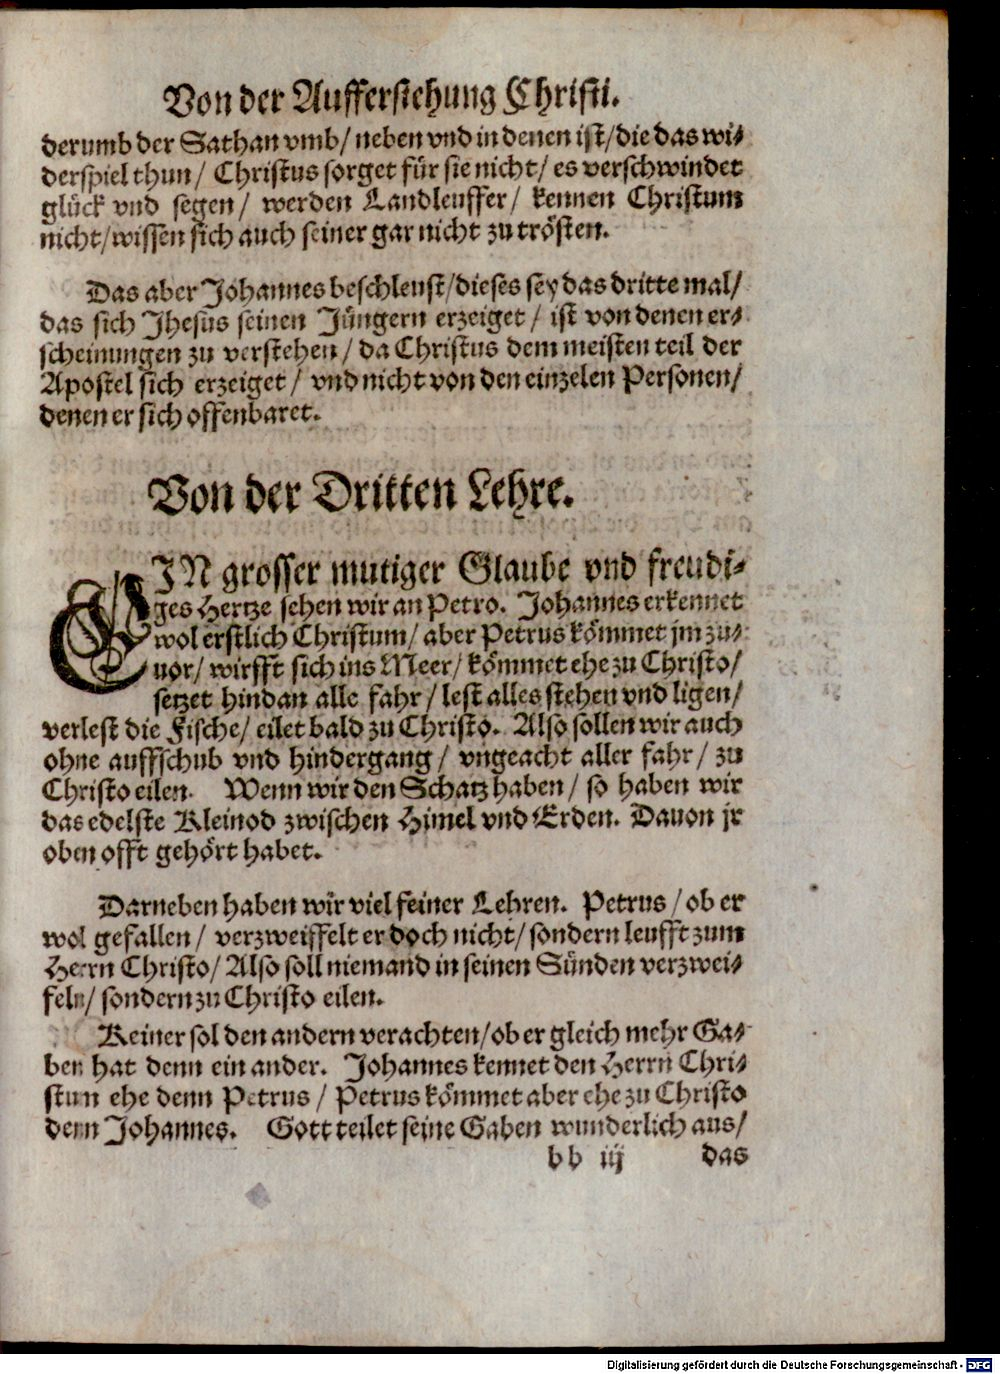 Von der Aufferstehung Christi.
derumb der Sathan vmb/ neben vnd in denen ist/ die das wi⸗
derspiel thun/ Christus sorget für sie nicht/ es verschwindet
glück vnd segen/ werden Landleuffer/ kennen Christum
nicht/ wissen sich auch seiner gar nicht zu trösten.
Das aber Johannes beschleust/ dieses sey das dritte mal/
das sich Jhesus seinen Jüngern erzeiget/ ist von denen er⸗
scheinungen zu verstehen/ da Christus dem meisten teil der
Apostel sich erzeiget/ vnd nicht von den einzelen Personen/
denen er sich offenbaret.
Von der Dritten Lehre.
EIN grosser mutiger Glaube vnd freudi⸗
ges Hertze sehen wir an Petro. Johannes erkennet
wol erstlich Christum/ aber Petrus kömmet jm zu⸗
uor/ wirfft sich ins Meer/ kömmet ehe zu Christo/
setzet hindan alle fahr/ lest alles stehen vnd ligen/
verlest die Fische/ eilet bald zu Christo. Also sollen wir auch
ohne auffschub vnd hindergang/ vngeacht aller fahr/ zu
Christo eilen. Wenn wir den Schatz haben/ so haben wir
das edelste Kleinod zwischen Himel vnd Erden. Dauon jr
oben offt gehört habet.
Darneben haben wir viel feiner Lehren. Petrus/ ob er
wol gefallen/ verzweiffelt er doch nicht/ sondern leufft zum
Herrn Christo/ Also soll niemand in seinen Sünden verzwei⸗
feln/ sondern zu Christo eilen.
Keiner sol den andern verachten/ ob er gleich mehr Ga⸗
ben hat denn ein ander. Johannes kennet den Herrn Chri⸗
stum ehe denn Petrus/ Petrus kömmet aber ehe zu Christo
denn Johannes. Gott teilet seine Gaben wunderlich aus/
bb iij das
Digitalisierung gefördert durch die Deutsche Forschungsgemeinschaft - DFG